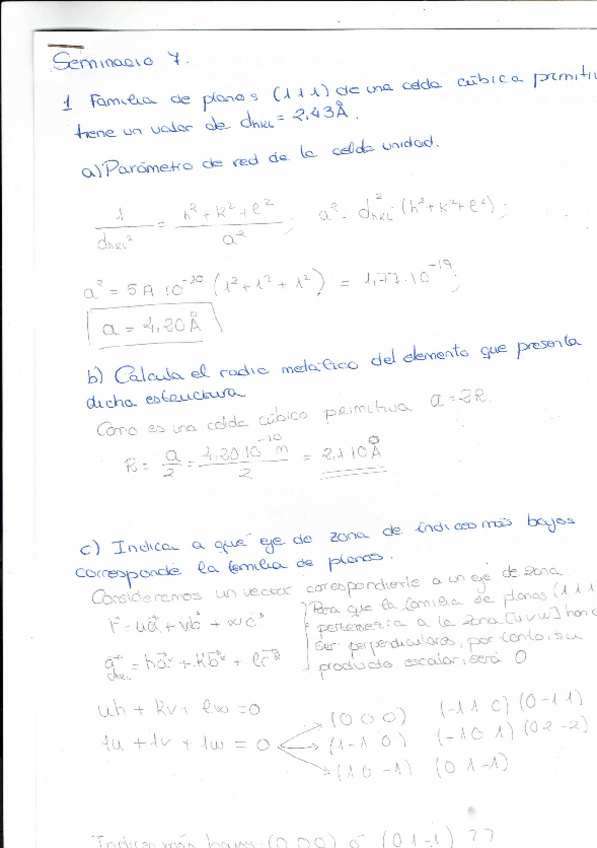 Seminario 7.
1 Familia de planos (1 1 1) de una celda cúbica primitiv
tiene un valor de dhkl = 2,43Å.
a) Parámetro de red de la celda unidad.
1/dhkl² = h²+k²+l²/a² ; a² = d²hkl · (h²+k²+l²);
a² = (1²+1²+1²) = 1,77·10⁻¹⁹;
a = 4,20Å
b) Calcula el radio metálico del elemento que presenta
dicha estructura
Como es una celda cúbico primitiva a=2R.
R = a/2 = 4,20·10⁻¹⁰ m/2 = 2,110Å
c) Indica a que eje de zona de índices más bajos
corresponde la familia de planos.
Consideremos un vector correspondiente a un eje de zona
r = ua + vb + wc
g hkl = ha* + kb* + lc*
Para que la familia de planos (1 1 1
pertenezca a la zona [u v w] han d
ser perpendiculares, por tanto, su
producto escalar será 0
uh + kv + lw = 0
1u + 1v + 1w = 0
(0 0 0) (-1 1 0) (0 -1 1)
(1 -1 0) (-1 0 1) (0 2 -2)
(1 0 -1) (0 1 -1)
Indices más bajos: (0 0 0) o (0 1 -1) ??